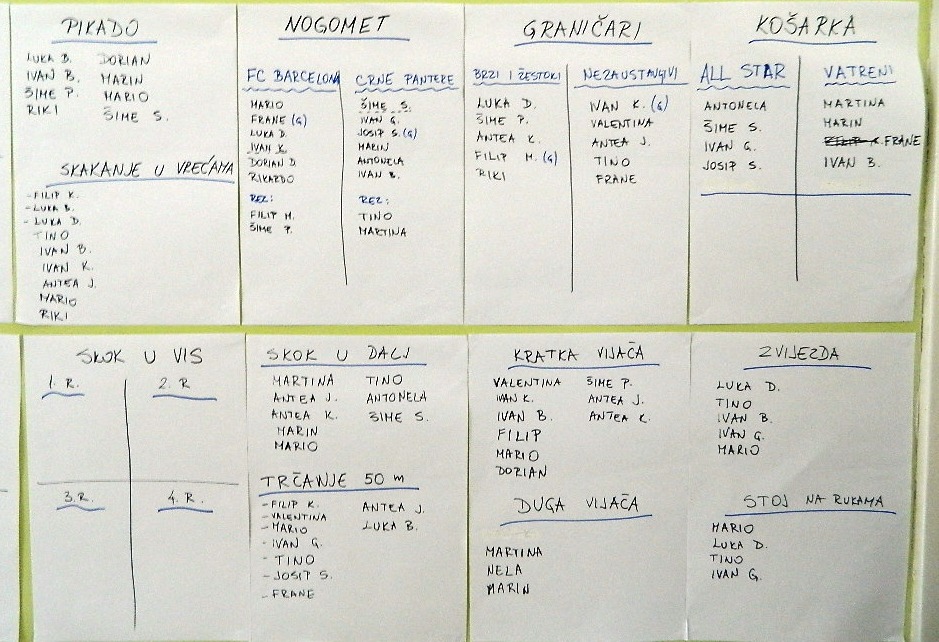 PIKADO
LUKA B. DORIAN
IVAN B. MARIN
ŠIME P. MARIO
RIKI ŠIME S.
SKAKANJE U VREĆAMA
- FILIP K.
- LUKA B.
- LUKA D.
TINO
IVAN B.
IVAN K.
ANTEA J.
MARIO
RIKI
NOGOMET
FC BARCELONA
MARIO
FRANE (G)
LUKA D.
IVAN K.
DORIAN D.
RIKARDO
REZ:
FILIP M.
ŠIME P.
CRNE PANTERE
ŠIME S.
IVAN G.
JOSIP S. (G)
MARIN
ANTONELA
IVAN B.
REZ:
TINO
MARTINA
GRANIČARI
BRZI I ŽESTOKI
LUKA D.
ŠIME P.
ANTEA K.
FILIP M. (G)
RIKI
NEZAUSTAVLJIVI
IVAN K. (G)
VALENTINA
ANTEA J.
TINO
FRANE
KOŠARKA
ALL STAR
ANTONELA
ŠIME S.
IVAN G.
JOSIP S.
VATRENI
MARTINA
MARIN
FRANE
IVAN B.
SKOK U VIS
1. R. 2. R
3. R. 4. R.
SKOK U DALJ
MARTINA TINO
ANTEA J. ANTONELA
ANTEA K. ŠIME S.
MARIN
MARIO
TRČANJE 50 m
- FILIP K. ANTEA J.
- VALENTINA LUKA B.
- MARIO
- IVAN G.
- TINO
- JOSIP S.
- FRANE
KRATKA VIJAČA
VALENTINA ŠIME P.
IVAN K. ANTEA J.
IVAN B. ANTEA K.
FILIP
MARIO
DORIAN
DUGA VIJAČA
MARTINA
NELA
MARIN
ZVIJEZDA
LUKA D.
TINO
IVAN B.
IVAN G.
MARIO
STOJ NA RUKAMA
MARIO
LUKA D.
TINO
IVAN G.